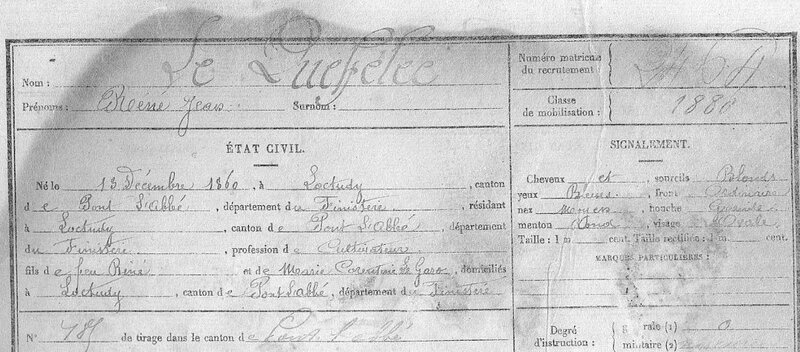 Nom : Le Queffélec
Prénoms : René Jean Surnom :
Numéro matricule du recrutement :
Classe de mobilisation : 1880
ÉTAT CIVIL.
Né le 13 Décembre 1860, à Loctudy, canton
de Pont L'Abbé, département du Finistère, résidant
à Loctudy, canton de Pont L'Abbé, département
du Finistère, profession de Cultivateur
fils de feu Réné et de Marie Corentine Le Garo, domiciliés
à Loctudy, canton de Pont L'abbé, département du Finistère
N° de tirage dans le canton de Pont L'abbé
SIGNALEMENT.
Cheveux et sourcils Blonds
yeux Bleus, front Ordinaire
nez moyen, bouche Grande
menton Rond, visage Ovale
Taille : 1 m cent. Taille rectifiée : 1 m. cent.
MARQUES PARTICULIÈRES :
Degré d'instruction :
générale (1) 0
militaire (2)